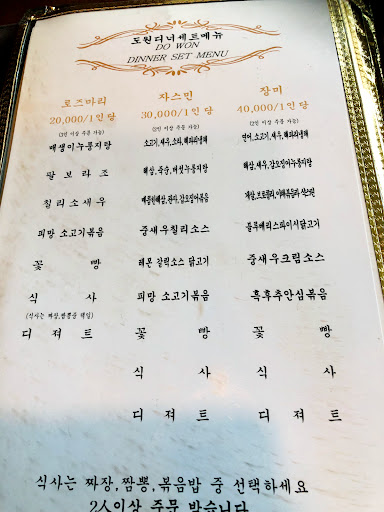 도원디너세트메뉴
DO WON
DINNER SET MENU
로즈마리
20,000/1인당
(2인 이상 주문 가능)
매생이누룽지탕
팔보라조
칠리소새우
피망 소고기볶음
꽃빵
식사
(식사는 짜장,짬뽕중 택일)
디저트
쟈스민
30,000/1인당
(2인 이상 주문 가능)
소고기, 새우, 소라, 해파리냉채
해삼, 죽순, 버섯누룽지탕
매콤한해삼, 관자, 갑오징어볶음
중새우칠리소스
레몬 갈릭소스 닭고기
피망 소고기볶음
꽃빵
식사
디져트
장미
40,000/1인당
(2인 이상 주문 가능)
연어, 소고기, 새우, 해파리냉채
해삼, 새우, 갑오징어누룽지탕
게살, 브로콜리,
블루베리스파이시닭고기
중새우크림소스
흑후추안심볶음
꽃빵
식사
디져트
식사는 짜장,짬뽕,볶음밥 중 선택하세요
2人이상 주문 받습니다